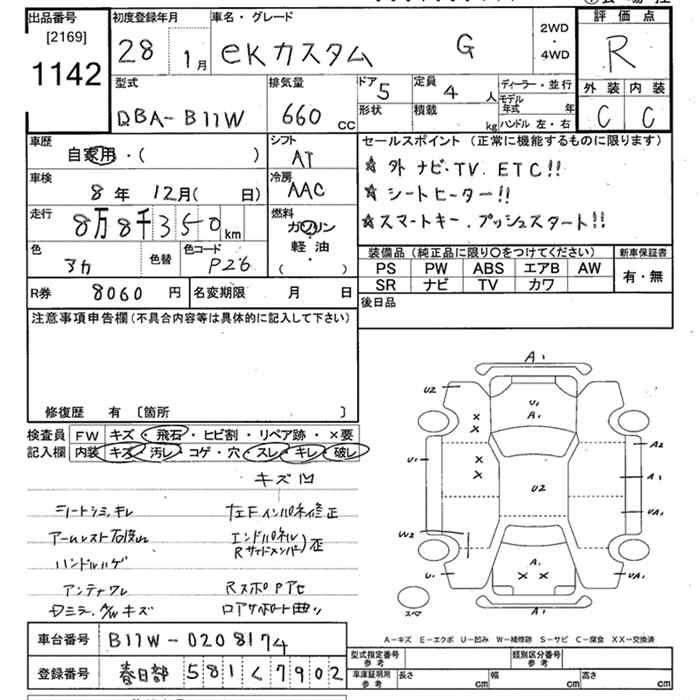 出品番号
[2169]
1142
初度登録年月
28 1月
車名・グレード
eKカスタム G
2WD
・
4WD
評価点
R
外装 内装
C C
型式
DBA-B11W
排気量
660 CC
ドア 5
定員 4 人
形状
積載 kg
ディーラー・並行
モデル年式 年
ハンドル 左・右
車歴
自家用・( )
シフト
AT
車検
8年 12月( 日)
冷房
AAC
走行
8万8千350 km
燃料
ガソリン
・
軽油
( )
色
アカ
色替
色コード
P26
セールスポイント(正常に機能するものに限ります)
☆外ナビ・TV.ETC!!
☆シートヒーター!!
☆スマートキー.プッシュスタート!!
装備品(純正品に限り○をつけてください)
新車保証書
PS PW ABS エアB AW
SR ナビ TV カワ
有・無
R券 8060円
名変期限 月 日
後日品
注意事項申告欄(不具合内容等は具体的に記入して下さい)
修復歴 有 〔箇所 〕
検査員記入欄
FW キズ・飛石・ヒビ割・リペア跡・×要
内装 キズ・汚レ・コゲ・穴・スレ・キレ・破レ
キズ凹
シートシミ.キレ
左Fインパネイ修正
エンドパネル
Rサイドメンバー)歪
ハンドルハゲ
アンテナワレ
キズ
A1
U2
U1
A1
A2
U1
U2
A1
UA1
W2
U1
A1
UA1
A1
スペア
A-キズ E-エクボ U-凹み W-補修跡 S-サビ C-腐食 XX-交換済
車台番号 B11W-0208174
登録番号 春日部 581 く 7902
型式指定番号 参考
類別区分番号 参考
車庫証明用 参考
長さ cm
幅 cm
高さ cm